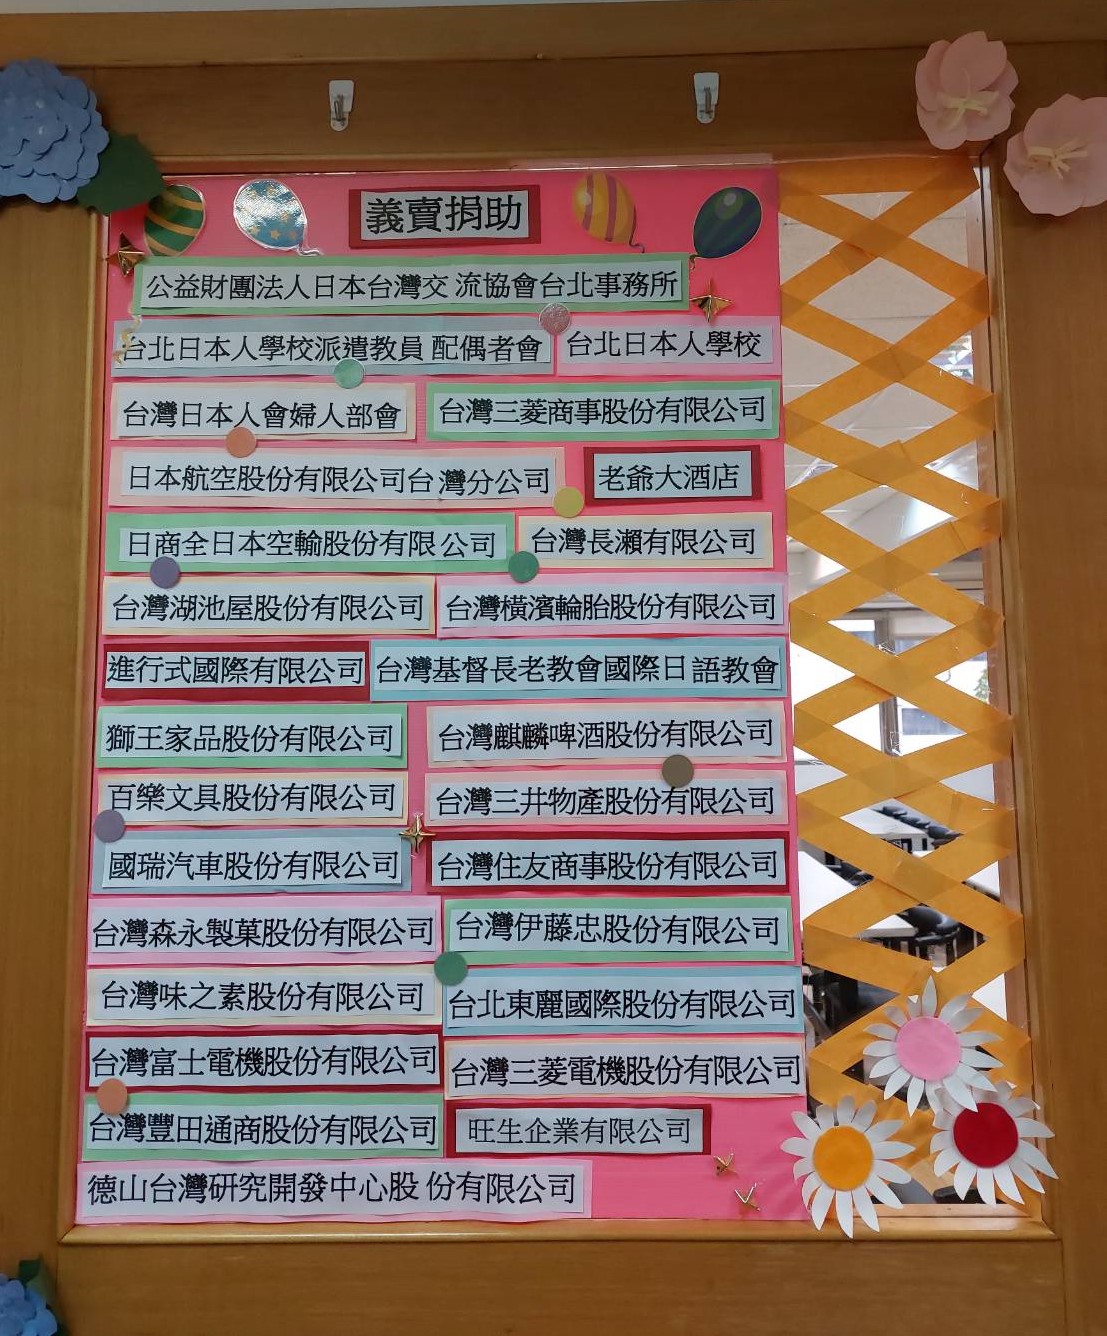 義賣捐助
公益財團法人日本台灣交流協會台北事務所
台北日本人學校派遣教員配偶者會
台北日本人學校
台灣日本人會婦人部會
台灣三菱商事股份有限公司
日本航空股份有限公司台灣分公司
老爺大酒店
日商全日本空輸股份有限公司
台灣長瀨有限公司
台灣湖池屋股份有限公司
台灣橫濱輪胎股份有限公司
進行式國際有限公司
台灣基督長老教會國際日語教會
獅王家品股份有限公司
台灣麒麟啤酒股份有限公司
百樂文具股份有限公司
台灣三井物產股份有限公司
國瑞汽車股份有限公司
台灣住友商事股份有限公司
台灣森永製菓股份有限公司
台灣伊藤忠股份有限公司
台灣味之素股份有限公司
台北東麗國際股份有限公司
台灣富士電機股份有限公司
台灣三菱電機股份有限公司
台灣豐田通商股份有限公司
旺生企業有限公司
德山台灣研究開發中心股份有限公司